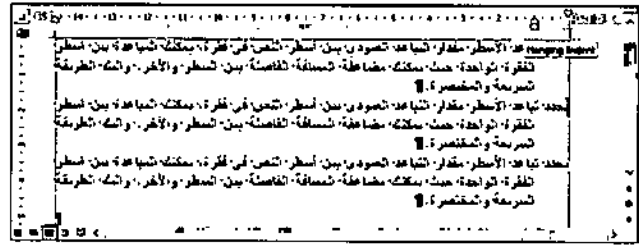 Hanging Indent
يحدد تباعد الأسطر مقدار التباعد العمودي بين أسطر النص في فقرة. يمكنك المباعدة بين أسطر
الفقرة الواحدة حيث يمكنك مضاعفة المسافة الفاصلة بين السطر والآخر. وإليك الطريقة
السريعة والمختصرة.¶
يحدد تباعد الأسطر مقدار التباعد العمودي بين أسطر النص في فقرة. يمكنك المباعدة بين أسطر
الفقرة الواحدة حيث يمكنك مضاعفة المسافة الفاصلة بين السطر والآخر. وإليك الطريقة
السريعة والمختصرة.¶
يحدد تباعد الأسطر مقدار التباعد العمودي بين أسطر النص في فقرة. يمكنك المباعدة بين أسطر
الفقرة الواحدة حيث يمكنك مضاعفة المسافة الفاصلة بين السطر والآخر. وإليك الطريقة
السريعة والمختصرة.¶